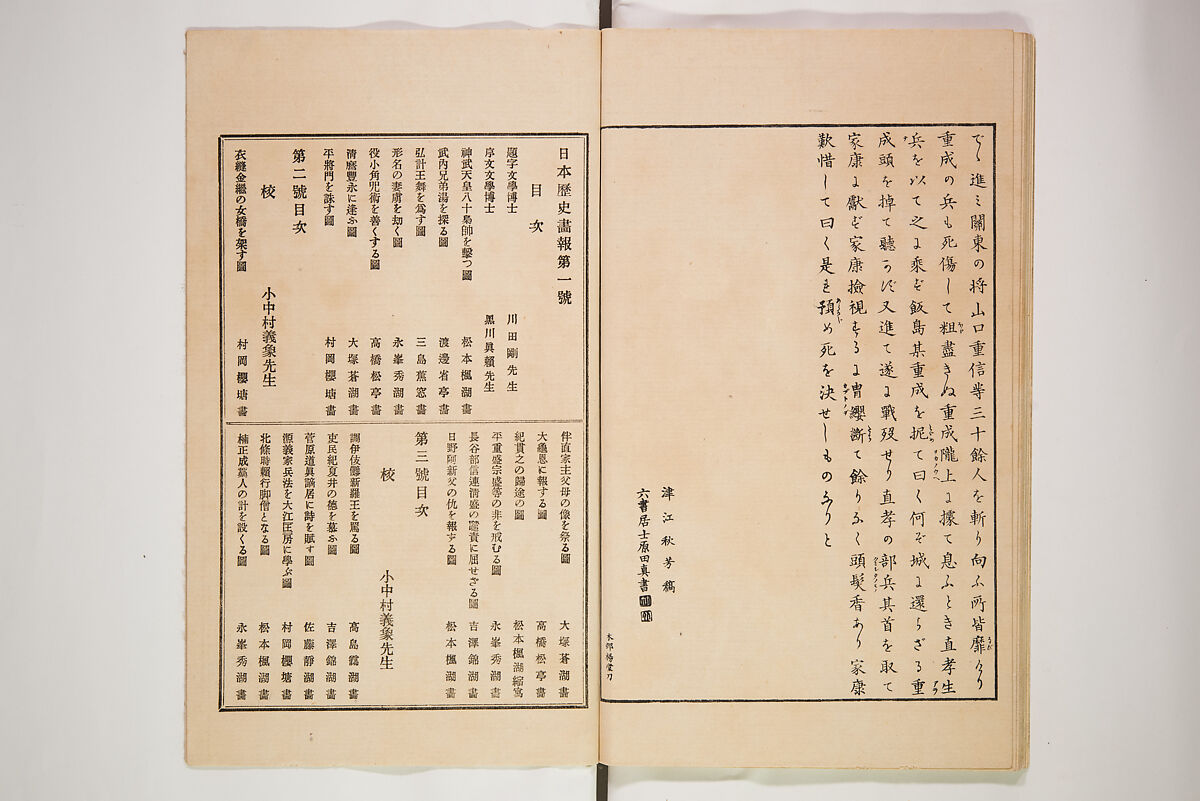 でゝ進ミ關東の将山口重信等三十餘人を斬り向ふ所皆靡けり
重成の兵も死傷して粗盡きぬ重成隴上に據て息ふとき直孝生
兵を以て之に乗ず飯島某重成を扼て曰く何ぞ城に還らざる重
成頭を掉て聽かず又進て遂に戰歿せり直孝の部兵其首を取て
家康に獻ず家康撿視するに冑纓斷て餘りなく頭髪香あり家康
歎惜して曰く是れ預め死を決せしものなりと
津江秋芳稿
六書居士原田真書
木邨楊堂刀
日本歷史畫報第一號
目次
題字文學博士 川田剛先生
序文文學博士 黒川眞賴先生
神武天皇八十梟帥を擊つ圖 松本楓湖畫
武內兄弟湯を探る圖 渡邊省亭畫
弘計王舞を爲す圖 三島蕉窓畫
形名の妻虜を劫く圖 永峯秀湖畫
役小角咒術を善くする圖 高橋松亭畫
淸麿豐永に逢ふ圖 大塚蒼湖畫
平將門を誅す圖 村岡櫻塘畫
第二號目次
校 小中村義象先生
衣縫金繼の女橋を架す圖 村岡櫻塘畫
伴直家主父母の像を祭る圖 大塚蒼湖畫
大龜恩に報する圖 高橋松亭畫
紀貫之の歸途の圖 松本楓湖縮寫
平重盛宗盛等の非を戒むる圖 永峯秀湖畫
長谷部信連淸盛の譴責に屈せざる圖 吉澤錦湖畫
日野阿新父の仇を報する圖 松本楓湖畫
第三號目次
校 小中村義象先生
調伊伎儺新羅王を罵る圖 高島靄湖畫
吏民紀夏井の德を慕ふ圖 吉澤錦湖畫
菅原道眞謫居に詩を賦す圖 佐藤靜湖畫
源義家兵法を大江匡房に學ぶ圖 村岡櫻塘畫
北條時賴行脚僧となる圖 松本楓湖畫
楠正成藁人の計を設くる圖 永峯秀湖畫